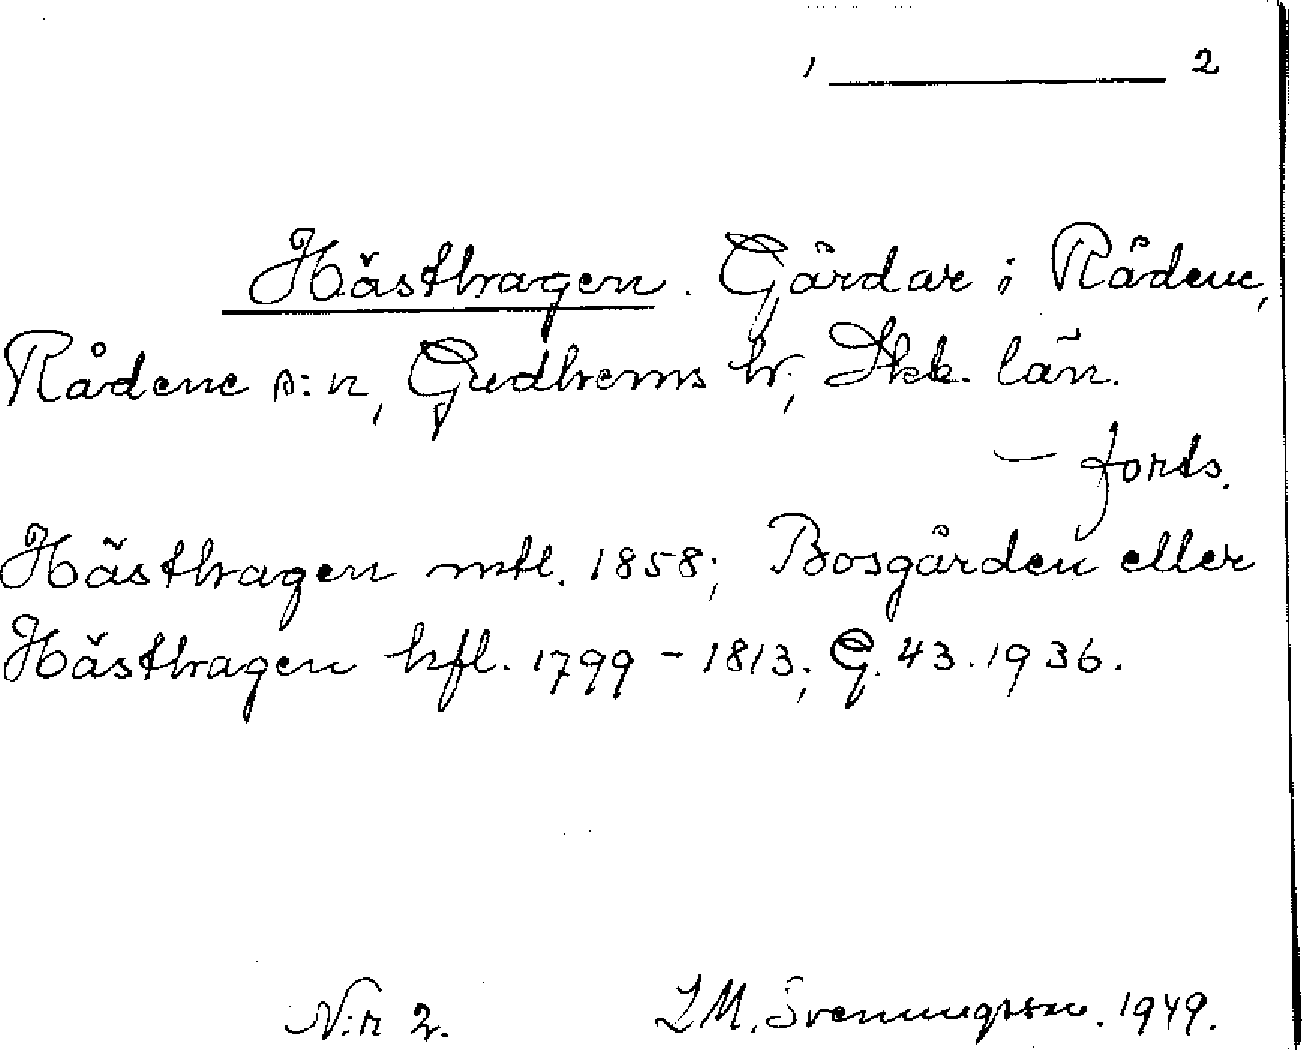 , 2
Hästhagen. Gårdar i Rådene,
Rådene s:n, Gudhems hr, Skb. län.
— fords.
Hästhagen mtl. 1858; Bosgården eller
Hästhagen hfl. 1799 - 1813; G. 43. 1936.
N:r 2. I.M. Svenningsson. 1949.